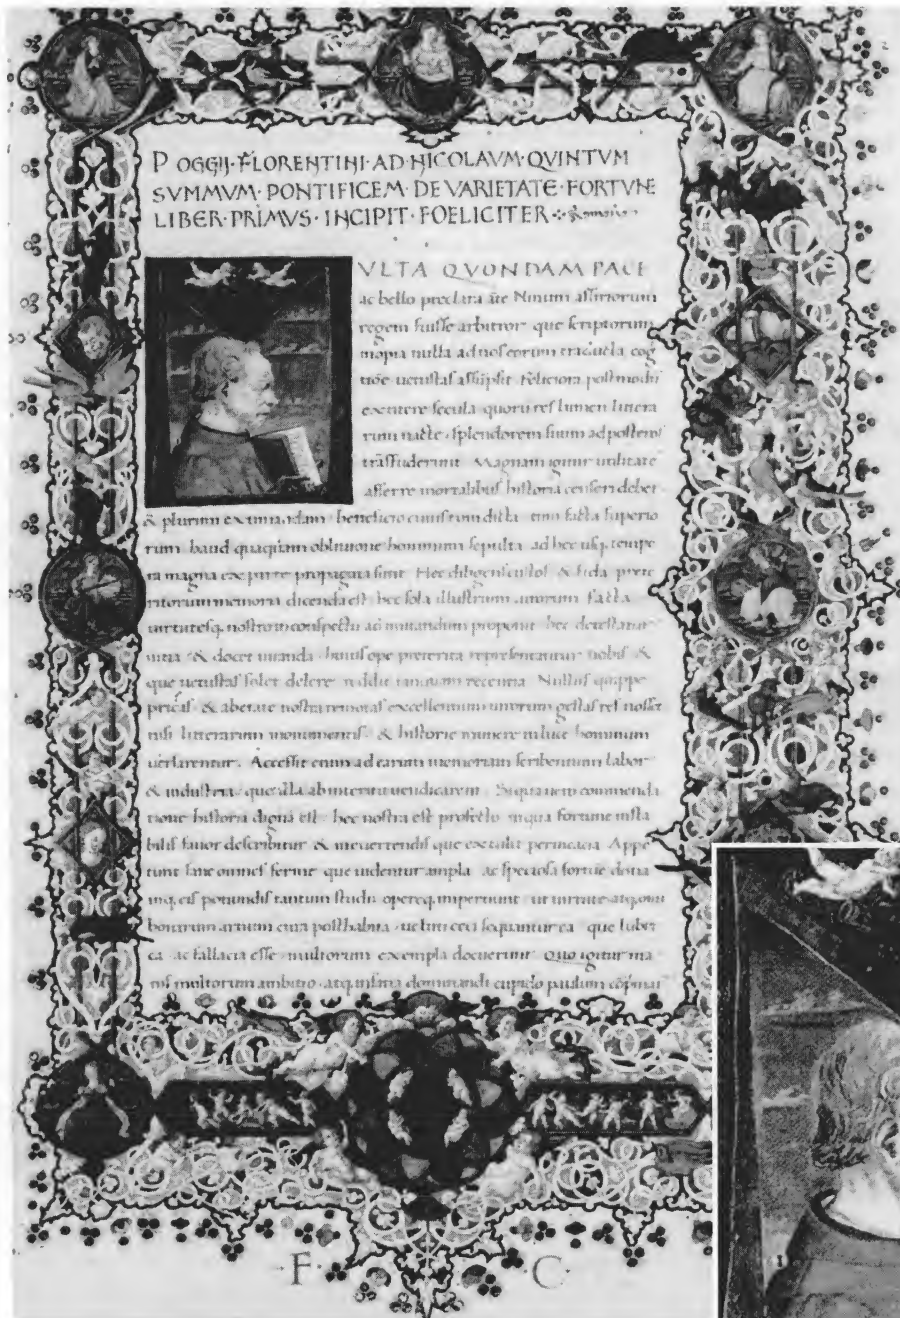 POGGIJ·FLORENTINI·AD·NICOLAVM·QVINTVM
SVMMVM·PONTIFICEM·DE VARIETATE·FORTVNE
LIBER·PRIMVS·INCIPIT·FOELICITER
VLTA QVONDAM PACE
ac bello preclara ãte Ninum assiriorum
regem fuisse arbitror que scriptorum
inopia nulla ad nos eorum traducta cog
excitere secula quorũ res lumen littera
rum nacte splendorem suum ad posteros
trãssuderunt Magnam igitur utilitatẽ
afferre mortalibus historia censeri debet
& plurimi existimandam beneficio cuius tum dicta tum facta superio
rum haud quaquam obliuione hominum sepulta ad hec usq. tempo
ra magna ex parte propagata sunt Hec diligens custos & fida prete
ritorum memoria dicenda est hec sola illustrium uirorum facta
uirtutesq. nostrum conspectu ad imitandum proponit hec detestatur
uitia & docet uitanda huius ope preterita representantur nobis &
que uetustas solet delere reddit tanquam recentia Nullus quippe
priscas & ab etate nostra remotas excellentium uirorum gestas res nosset
nisi litterarum monumentis & historie munere in luce hominum
uersarentur. Accessit enim ad earum memoriam scribentium labor
& industria que illa ab interitu uendicarent Siqua uero commenda
tione historia digna est hec nostra est profecto in qua fortune insta
bilis fauor describitur & in euertendis que extulit pertinacia Appe
tunt sane omnes ferme que uidentur ampla ac speciosa fortũe dona
inq. eis potiundis tantum studii opereq. impertiunt ut uirtute atq.
bonarum artium cura posthabita ueluti ceci sequantur ea que lubri
ca ac fallacia esse multorum exempla docuerunt Quo igitur ma
nis multorum ambitio atq. insana dominandi cupido paulum
·F· ·C·